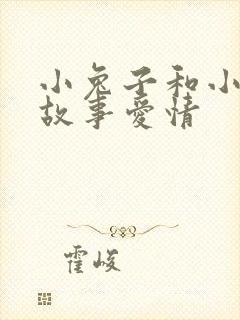 小兔子和小
故事爱情
霍峻